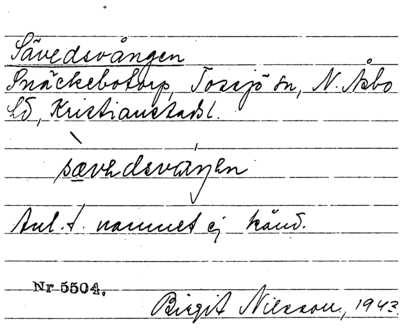 Sävedsvången
Snäckebotorp, Tossjö sn, N. Åsbo
hd, Kristianstads l.
sævedsvaŋen
Anl. t. namnet ej känd.
Nr 5504.
Birgit Nilsson, 1943.